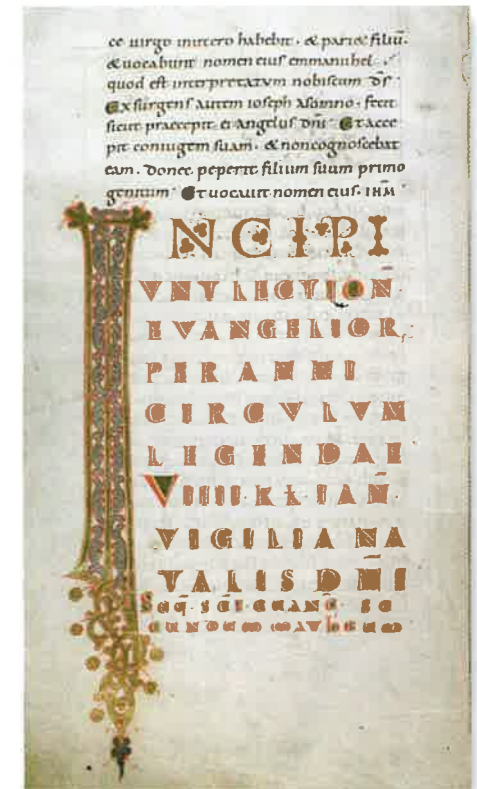 ce uirgo inutero habebit · & pariæ filiū.
& uocabunt nomen eius emmanuhel ·
quod est interpretatum nobiscum d̄s ·
Exsurgens autem ioseph asomno · fecit
sicut praecepit ei angelus dn̄i · Et acce
pit coniugem suam · & noncognoscebat
eam · donec peperit filium suum primo
genitum · Et uocauit nomen eius · IHM̄
INCIPI
VNT LECTION̄
EVANGELIOR
PER ANNI
CIRCVLVM
LEGENDAE
VIIII · KL · IAN̄ ·
VIGILIA NA
TALIS DN̄I
SEQ̄ · SC̄I · EUANG̅ · SE
CUNDUM MATHEUM